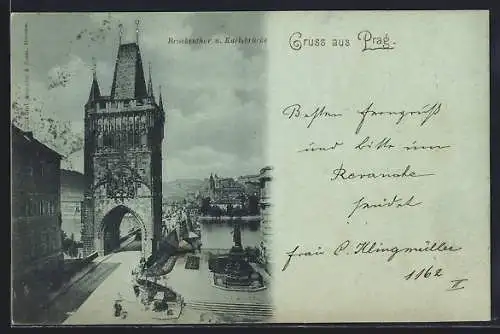 Brückenthor u. Karlsbrücke
Gruss aus Prag.
Besten Ferngruß
und bitte um
Revanche
sendet
Frau C. Klingmüller
1162
II